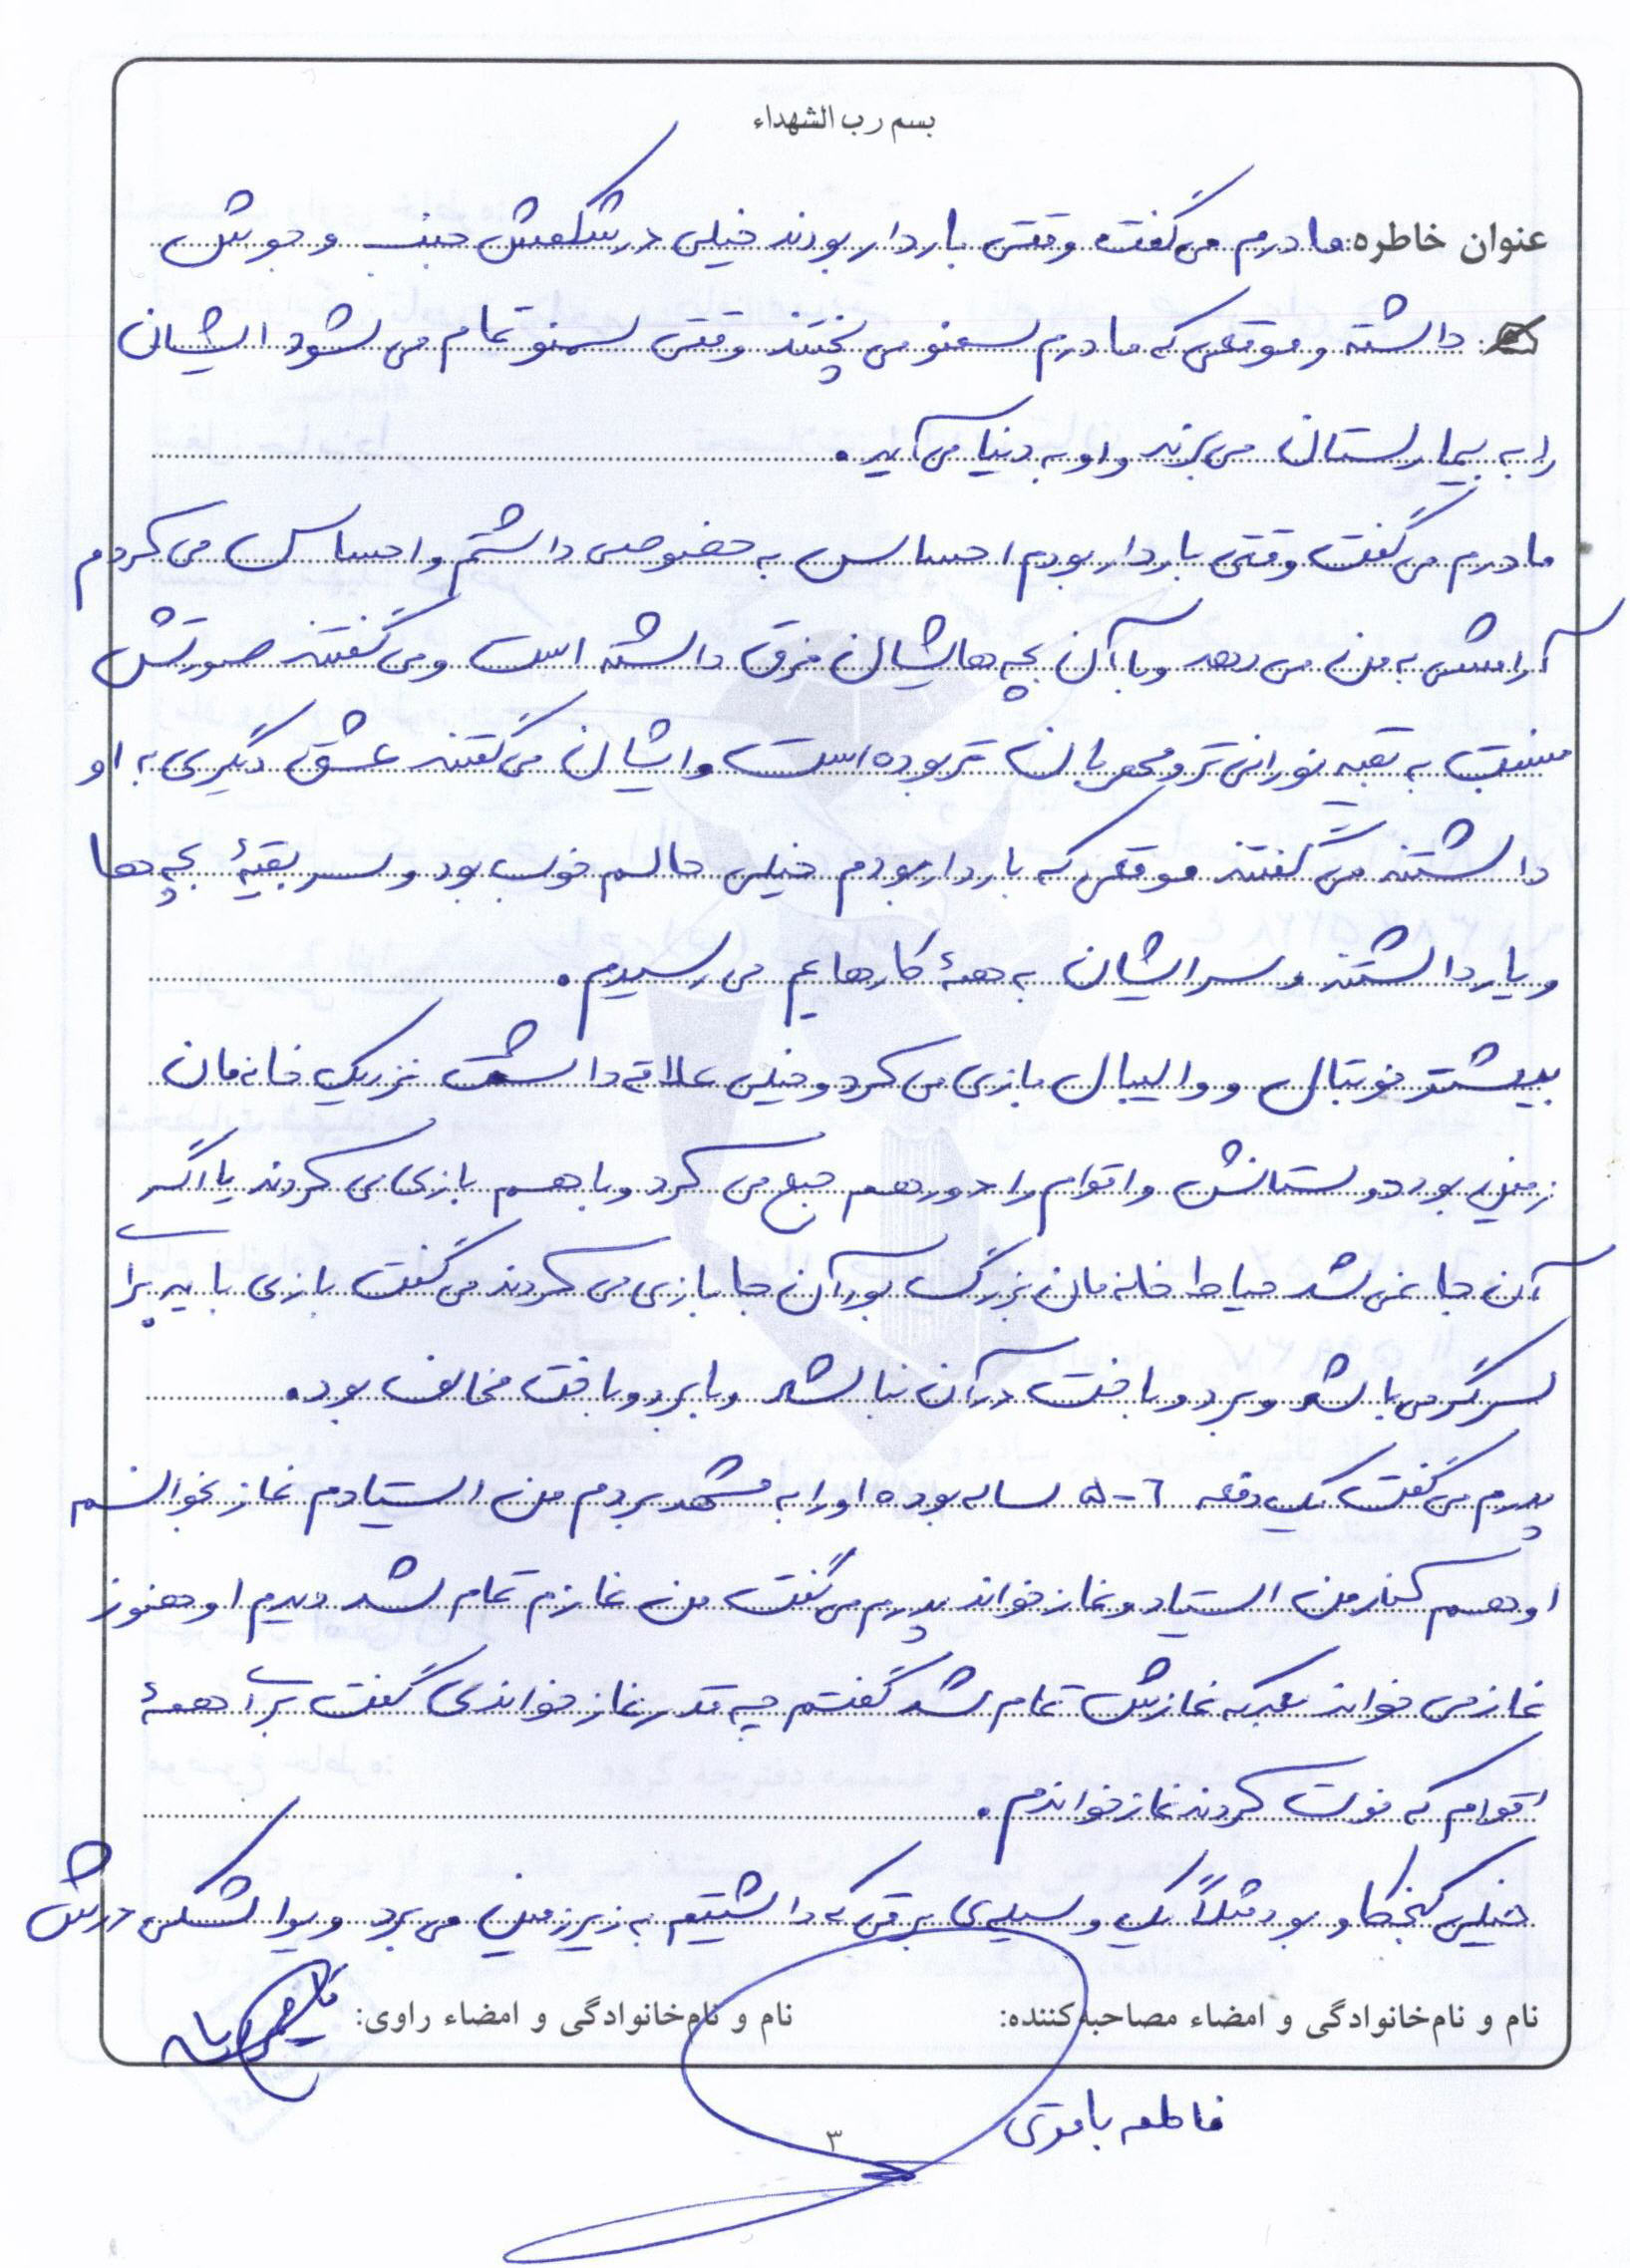 بسم رب الشهداء
عنوان خاطره: مادرم می گفت وقتی باردار بودند خیلی در شکمش جنب و جوش
داشته و موقعی که مادرم سمنو می پختند وقتی سمنو تمام می شود ایشان
را به بیمارستان می برند و او به دنیا می آید.
مادرم می گفت وقتی باردار بودم احساس به خصوصی داشتم و احساس می کردم
آرامش به من می دهد و با آن بچه هایشان فرق داشته است و می گفتند صورتش
نسبت به بقیه نورانی تر و مهربان تر بوده است و ایشان می گفتند عشق دیگری به او
داشتند می گفتند موقعی که باردار بودم خیلی حالم خوب بود و سر بقیهٔ بچه ها
ویار داشتند و سر ایشان به همهٔ کارهایم می رسیدم.
بیشتر فوتبال و والیبال بازی می کرد و خیلی علاقه داشت نزدیک خانه مان
زمین بود دوستانش و اقوام را دور هم جمع می کرد و با هم بازی می کردند یا اگر
آن جا نمی شد حیاط خانه مان بزرگ بود آن جا بازی می کردند می گفت بازی باید برای
سرگرمی باشد و برد و باخت در آن نباشد و با برد و باخت مخالف بود.
پدرم می گفت یک دفعه ۶-۵ ساله بوده او را به مشهد بردم من ایستادم نماز بخوانم
او هم کنار من ایستاد و نماز خواند پدرم می گفت من نمازم تمام شد دیدم او هنوز
نماز می خواند بعد که نمازش تمام شد گفتم چه قدر نماز خواندی گفت برای همهٔ
اقوام که فوت کردند نماز خواندم.
خیلی کنجکاو بود مثلاً یک وسیله ی برقی که داشتیم به زیرزمین می برد و یواشکی درش
نام و نام‌خانوادگی و امضاء مصاحبه‌کننده:
نام و نام‌خانوادگی و امضاء راوی:
فاطمه یاقوتی
۳